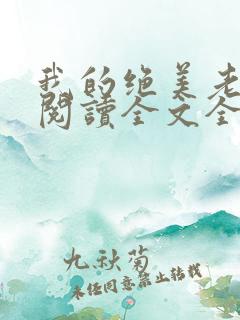 我的绝美老
閱讀全文全
九秋菊
未经同意禁止转载